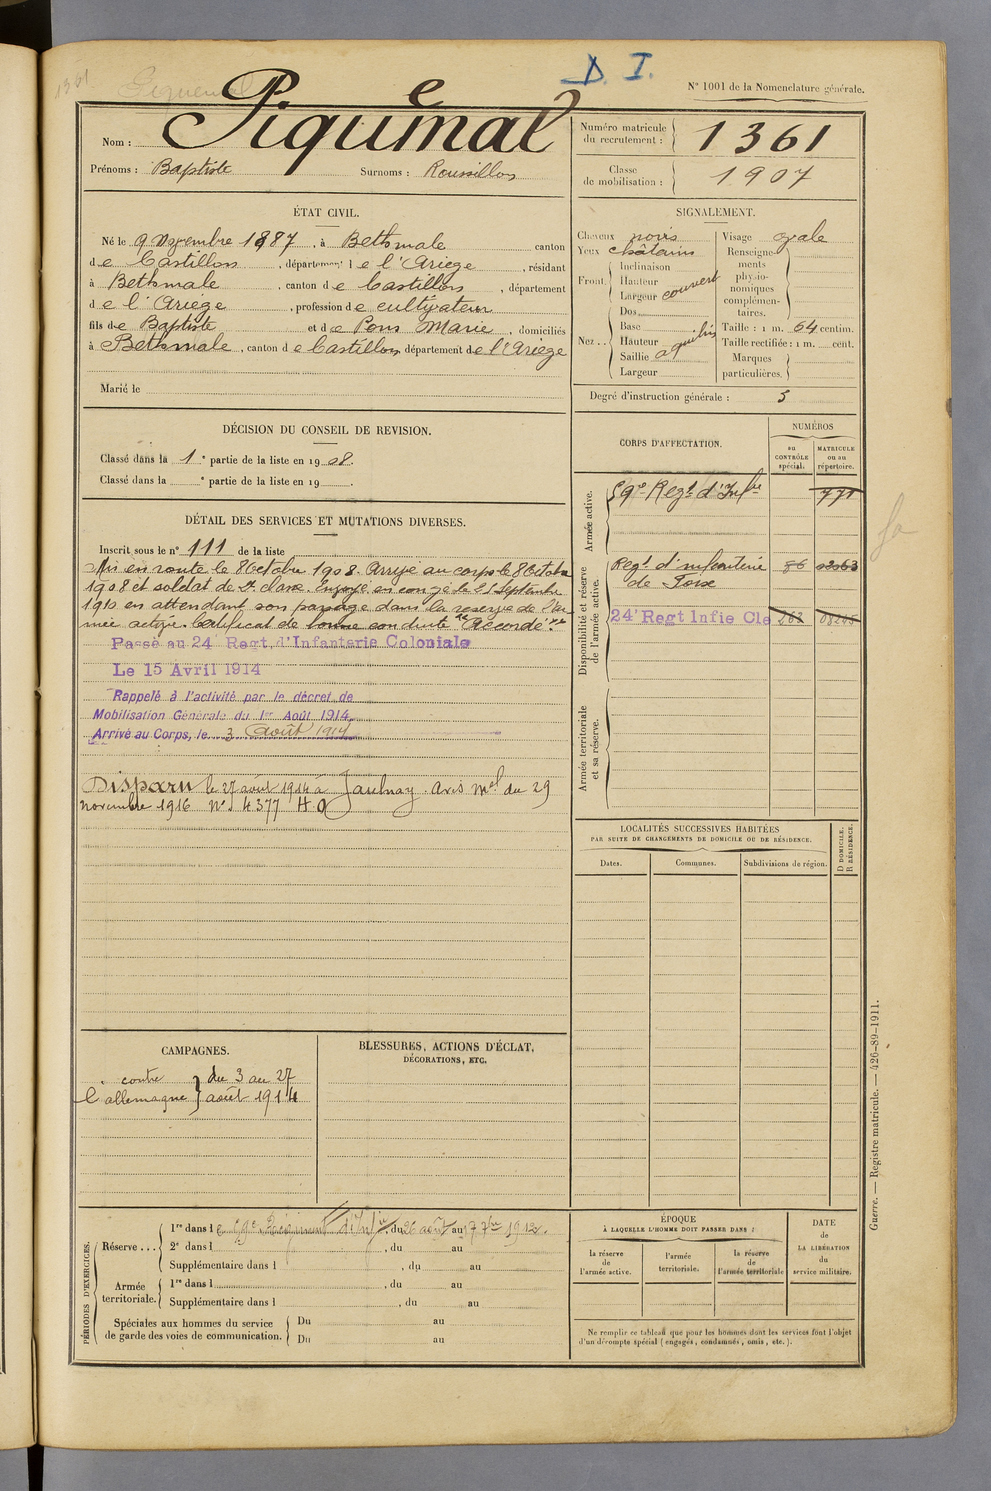 1361
Piquemal
D. I.
N° 1001 de la Nomenclature générale.
Nom : Piquemal
Prénoms : Baptiste Surnoms : Roussillon
Numéro matricule du recrutement : 1361
Classe de mobilisation : 1907
ÉTAT CIVIL.
Né le 9 Novembre 1887, à Bethmale canton
de Castillon, département de l'Ariège, résidant
à Bethmale, canton de Castillon, département
de l'Ariège, profession de cultivateur
fils de Baptiste et de Pons Marie, domiciliés
à Bethmale, canton de Castillon département de l'Ariège
Marié le
SIGNALEMENT.
Cheveux noirs
Yeux châtains
Front. Inclinaison
Hauteur
Largeur couvert
Nez .. Dos
Base
Hauteur aquilin
Saillie
Largeur
Visage ovale
Renseignements physionomiques complémentaires.
Taille : 1 m. 64 centim.
Taille rectifiée : 1 m. cent.
Marques particulières.
Degré d'instruction générale : 3
DÉCISION DU CONSEIL DE REVISION.
Classé dans la 1e partie de la liste en 1908.
Classé dans la e partie de la liste en 19 .
DÉTAIL DES SERVICES ET MUTATIONS DIVERSES.
Inscrit sous le n° 111 de la liste
Mis en route le 8 Octobre 1908. Arrivé au corps le 8 Octobre
1908 et soldat de 2e classe. Envoyé en congé le 25 Septembre
1910 en attendant son passage dans la réserve de l'ar
mée active. Certificat de bonne conduite "Accordé".
Passé au 24 Regt. d'Infanterie Coloniale
Le 15 Avril 1914
Rappelé à l'activité par le décret de
Mobilisation Générale du 1er Août 1914
Arrivé au Corps, le 3 Août 1914
Disparu le 27 août 1914 à Jaulnay. Avis mel du 29
novembre 1916 N° 4377 H O
CORPS D'AFFECTATION.
NUMÉROS
au CONTRÔLE spécial.
MATRICULE ou au répertoire.
Armée active.
59e Regt d'Infrie 771
Disponibilité et réserve de l'armée active.
Regt d'infanterie 86
de Foix
24e Regt Infie Cle
Armée territoriale et sa réserve.
LOCALITÉS SUCCESSIVES HABITÉES
PAR SUITE DE CHANGEMENTS DE DOMICILE OU DE RÉSIDENCE.
Dates. Communes. Subdivisions de région.
D DOMICILE. R RÉSIDENCE.
CAMPAGNES.
contre } du 3 au 27
l'allemagne } août 1914
BLESSURES, ACTIONS D'ÉCLAT,
DÉCORATIONS, ETC.
PÉRIODES D'EXERCICES.
Réserve ... 1re dans le Régiment d'Infie, du 26 août au 17 7bre 1912.
2e dans l , du au
Supplémentaire dans l , du au
Armée territoriale. 1re dans l , du au
Supplémentaire dans l , du au
Spéciales aux hommes du service de garde des voies de communication. Du au
Du au
ÉPOQUE
À LAQUELLE L'HOMME DOIT PASSER DANS :
la réserve de l'armée active.
l'armée territoriale.
la réserve de l'armée territoriale
DATE de LA LIBÉRATION du service militaire.
Ne remplir ce tableau que pour les hommes dont les services font l'objet
d'un décompte spécial (engagés, condamnés, omis, etc.).
Guerre. — Registre matricule. — 426-89-1911.